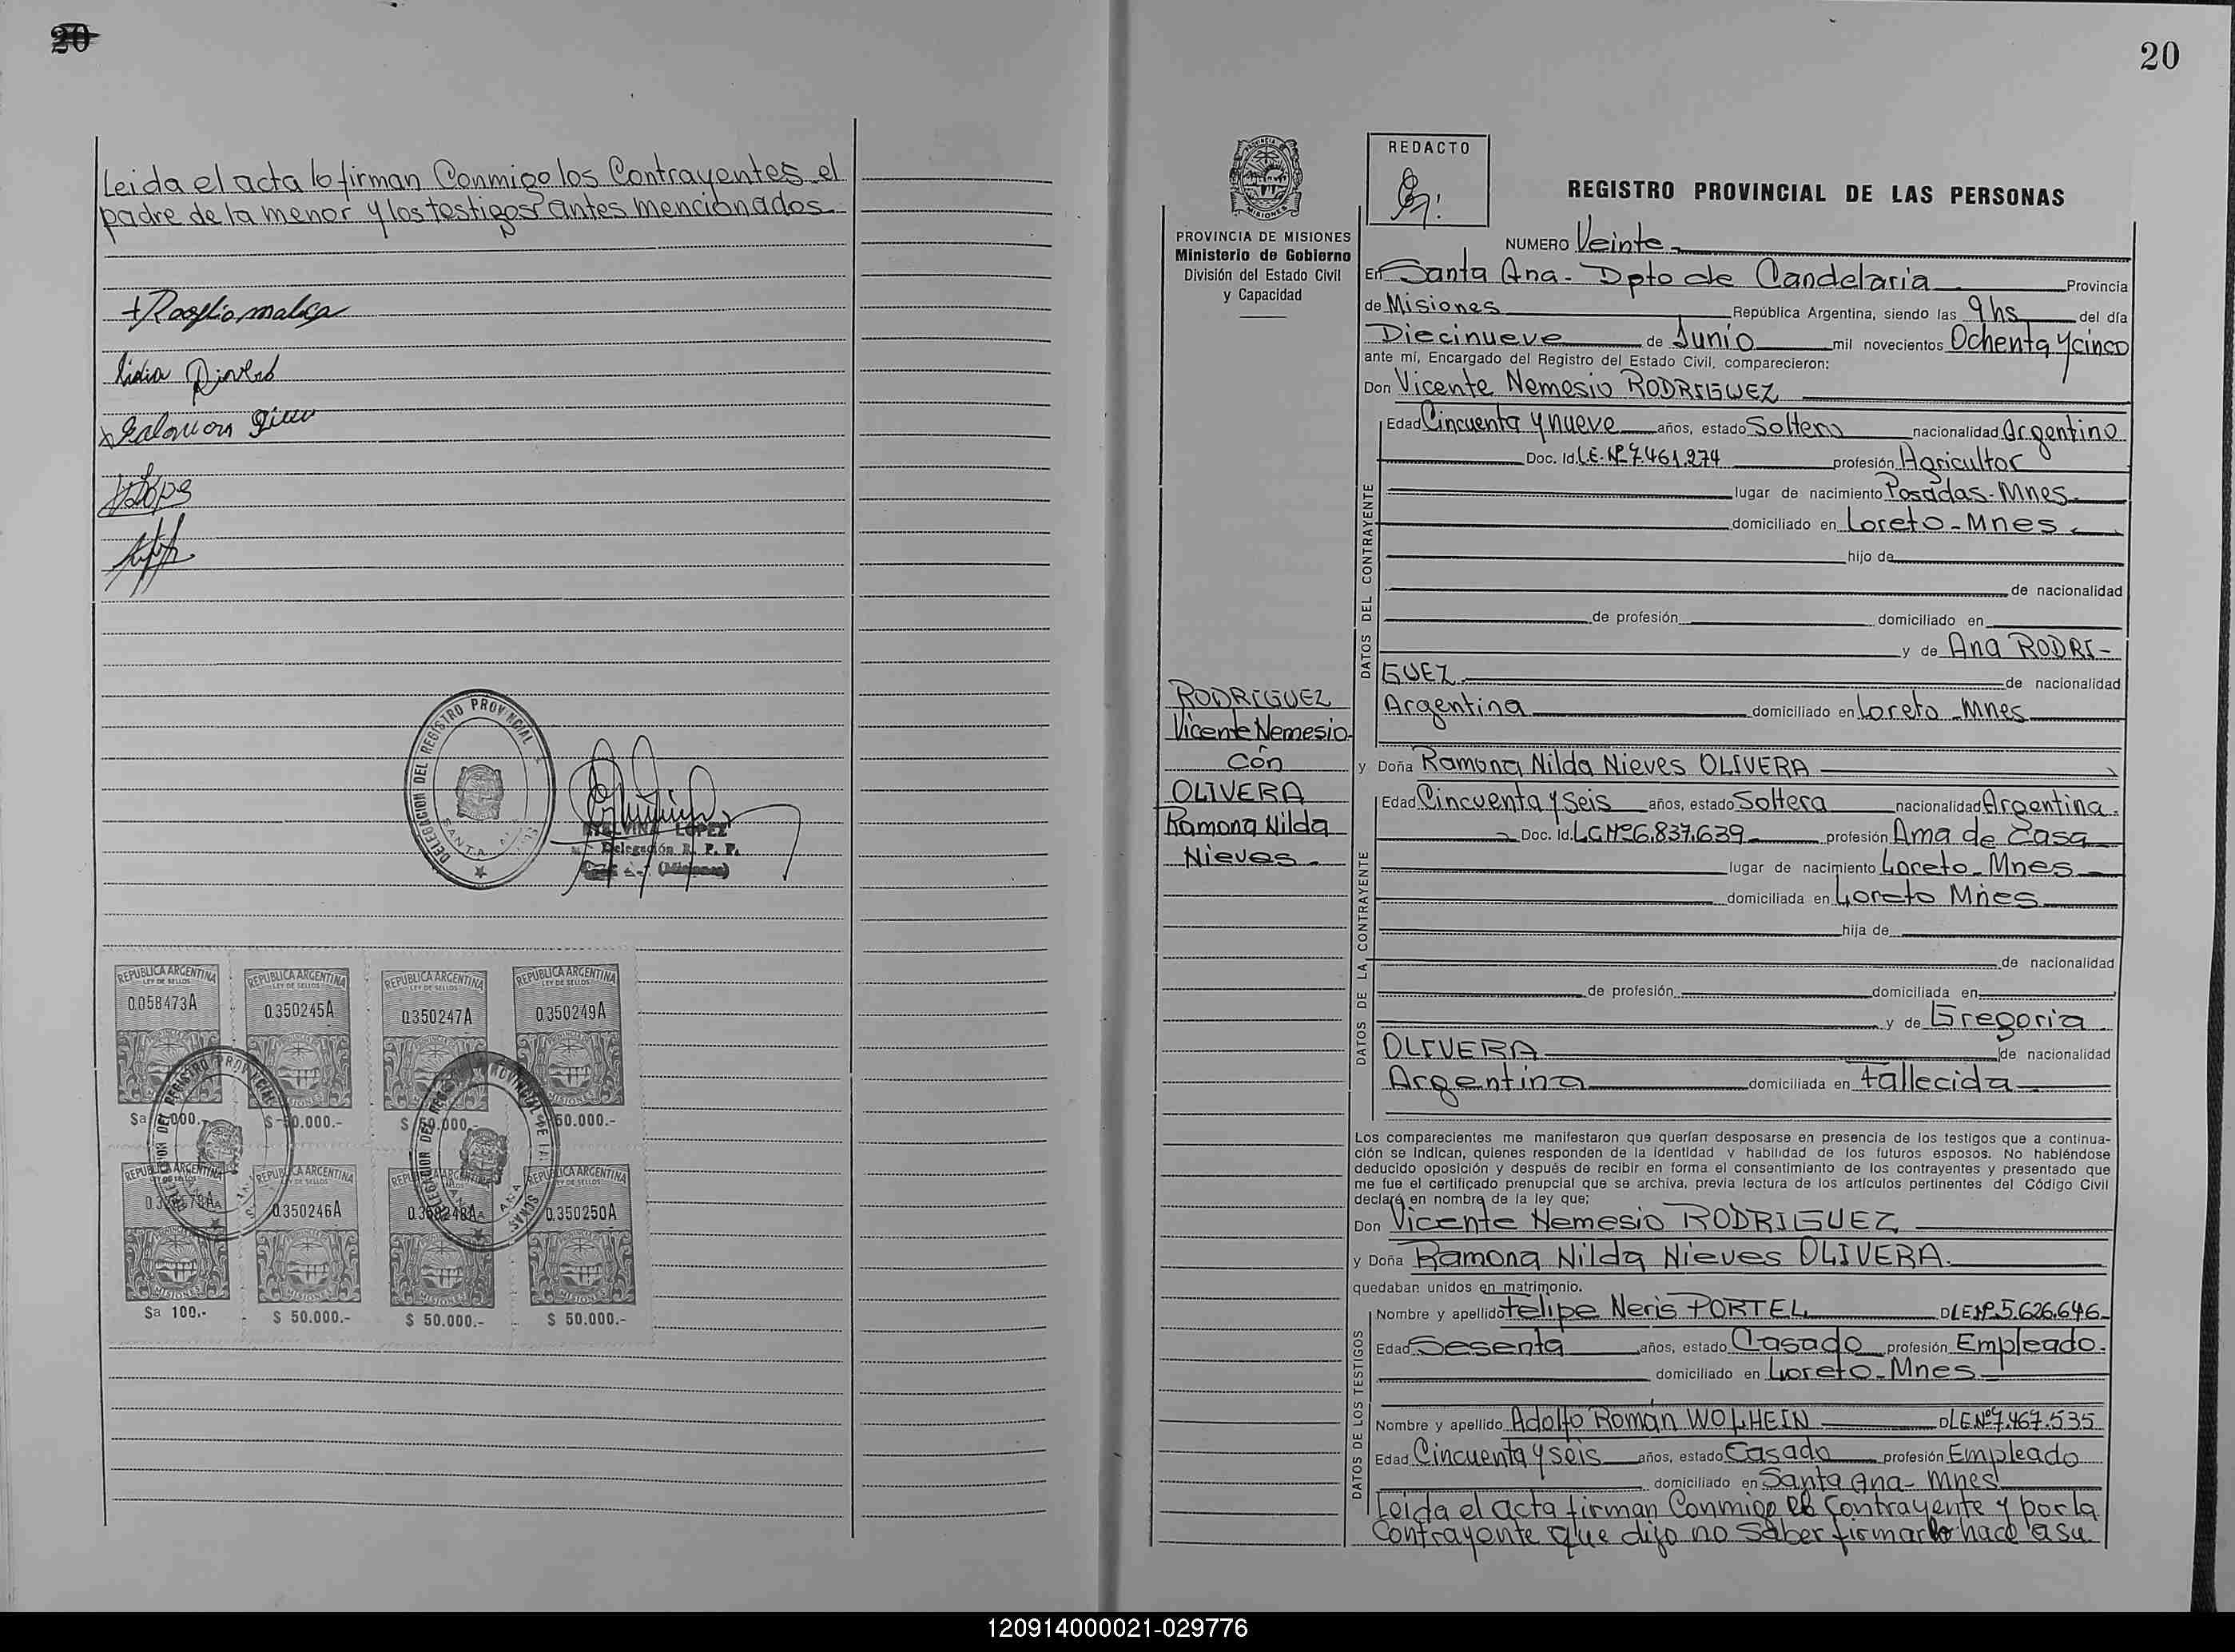 20
Leida el acta lo firman Conmigo los Contrayentes el
padre de la menor y los testigos antes mencionados
DELEGACION DEL REGISTRO PROVINCIAL
SANTA
LOPEZ
Delegación R. P. P.
(Misiones)
REPUBLICA ARGENTINA REPUBLICA ARGENTINA REPUBLICA ARGENTINA REPUBLICA ARGENTINA
LEY DE SELLOS LEY DE SELLOS LEY DE SELLOS LEY DE SELLOS
0.058473A 0.350245A 0.350247A 0.350249A
MISIONES
$ 50.000.- $ 50.000.- 50.000.-
REPUBLICA ARGENTINA REPUBLICA ARGENTINA REPUBLICA ARGENTINA REPUBLICA ARGENTINA
0.350246A 0.350248A 0.350250A
MISIONES MISIONES MISIONES MISIONES
$a 100.- $ 50.000.- $ 50.000.- $ 50.000.-
20
REDACTO
PROVINCIA DE MISIONES
Ministerio de Gobierno
División del Estado Civil
y Capacidad
REGISTRO PROVINCIAL DE LAS PERSONAS
NUMERO Veinte
En Santa Ana - Dpto de Candelaria Provincia
de Misiones República Argentina, siendo las 9 hs del día
Diecinueve de Junio mil novecientos Ochenta y cinco
ante mí, Encargado del Registro del Estado Civil, comparecieron:
Don Vicente Nemesio RODRIGUEZ
DATOS DEL CONTRAYENTE
Edad Cincuenta y nueve años, estado Soltero nacionalidad Argentino
Doc. Id. L.E. Nº 7.461.274 profesión Agricultor
lugar de nacimiento Posadas - Mnes.
domiciliado en Loreto - Mnes
hijo de
de nacionalidad
de profesión domiciliado en
y de Ana RODRI-
GUEZ de nacionalidad
Argentina domiciliado en Loreto - Mnes
RODRIGUEZ
Vicente Nemesio
Con
OLIVERA
Ramona Nilda
Nieves -
y Doña Ramona Nilda Nieves OLIVERA
DATOS DE LA CONTRAYENTE
Edad Cincuenta y Seis años, estado Soltera nacionalidad Argentina.
Doc. Id. LC Nº 6.837.639 profesión Ama de Casa
lugar de nacimiento Loreto - Mnes
domiciliada en Loreto Mnes
hija de
de nacionalidad
de profesión domiciliada en
y de Gregoria
OLIVERA de nacionalidad
Argentina domiciliada en Fallecida
Los comparecientes me manifestaron que querían desposarse en presencia de los testigos que a continua-
ción se indican, quienes responden de la identidad y habilidad de los futuros esposos. No habiéndose
deducido oposición y después de recibir en forma el consentimiento de los contrayentes y presentado que
me fue el certificado prenupcial que se archiva, previa lectura de los artículos pertinentes del Código Civil
declaré en nombre de la ley que;
Don Vicente Nemesio RODRIGUEZ
y Doña Ramona Nilda Nieves OLIVERA.
quedaban unidos en matrimonio.
DATOS DE LOS TESTIGOS
Nombre y apellido Felipe Neris PORTEL D LE Nº 5.626.646
Edad Sesenta años, estado Casado profesión Empleado.
domiciliado en Loreto - Mnes
Nombre y apellido Adolfo Román WOLHEIN D LE Nº 7.467.535
Edad Cincuenta y seis años, estado Casado profesión Empleado
domiciliado en Santa Ana - Mnes
Leida el acta firman Conmigo el Contrayente y por la
Contrayente que dijo no Saber firmar lo hace a su
120914000021-029776